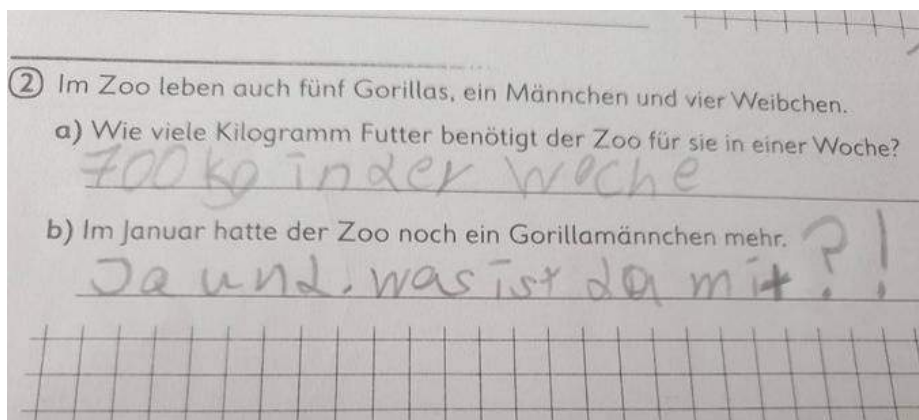 ② Im Zoo leben auch fünf Gorillas, ein Männchen und vier Weibchen.
a) Wie viele Kilogramm Futter benötigt der Zoo für sie in einer Woche?
700 kg in der Woche
b) Im Januar hatte der Zoo noch ein Gorillamännchen mehr.
Ja und. was ist da mit?!